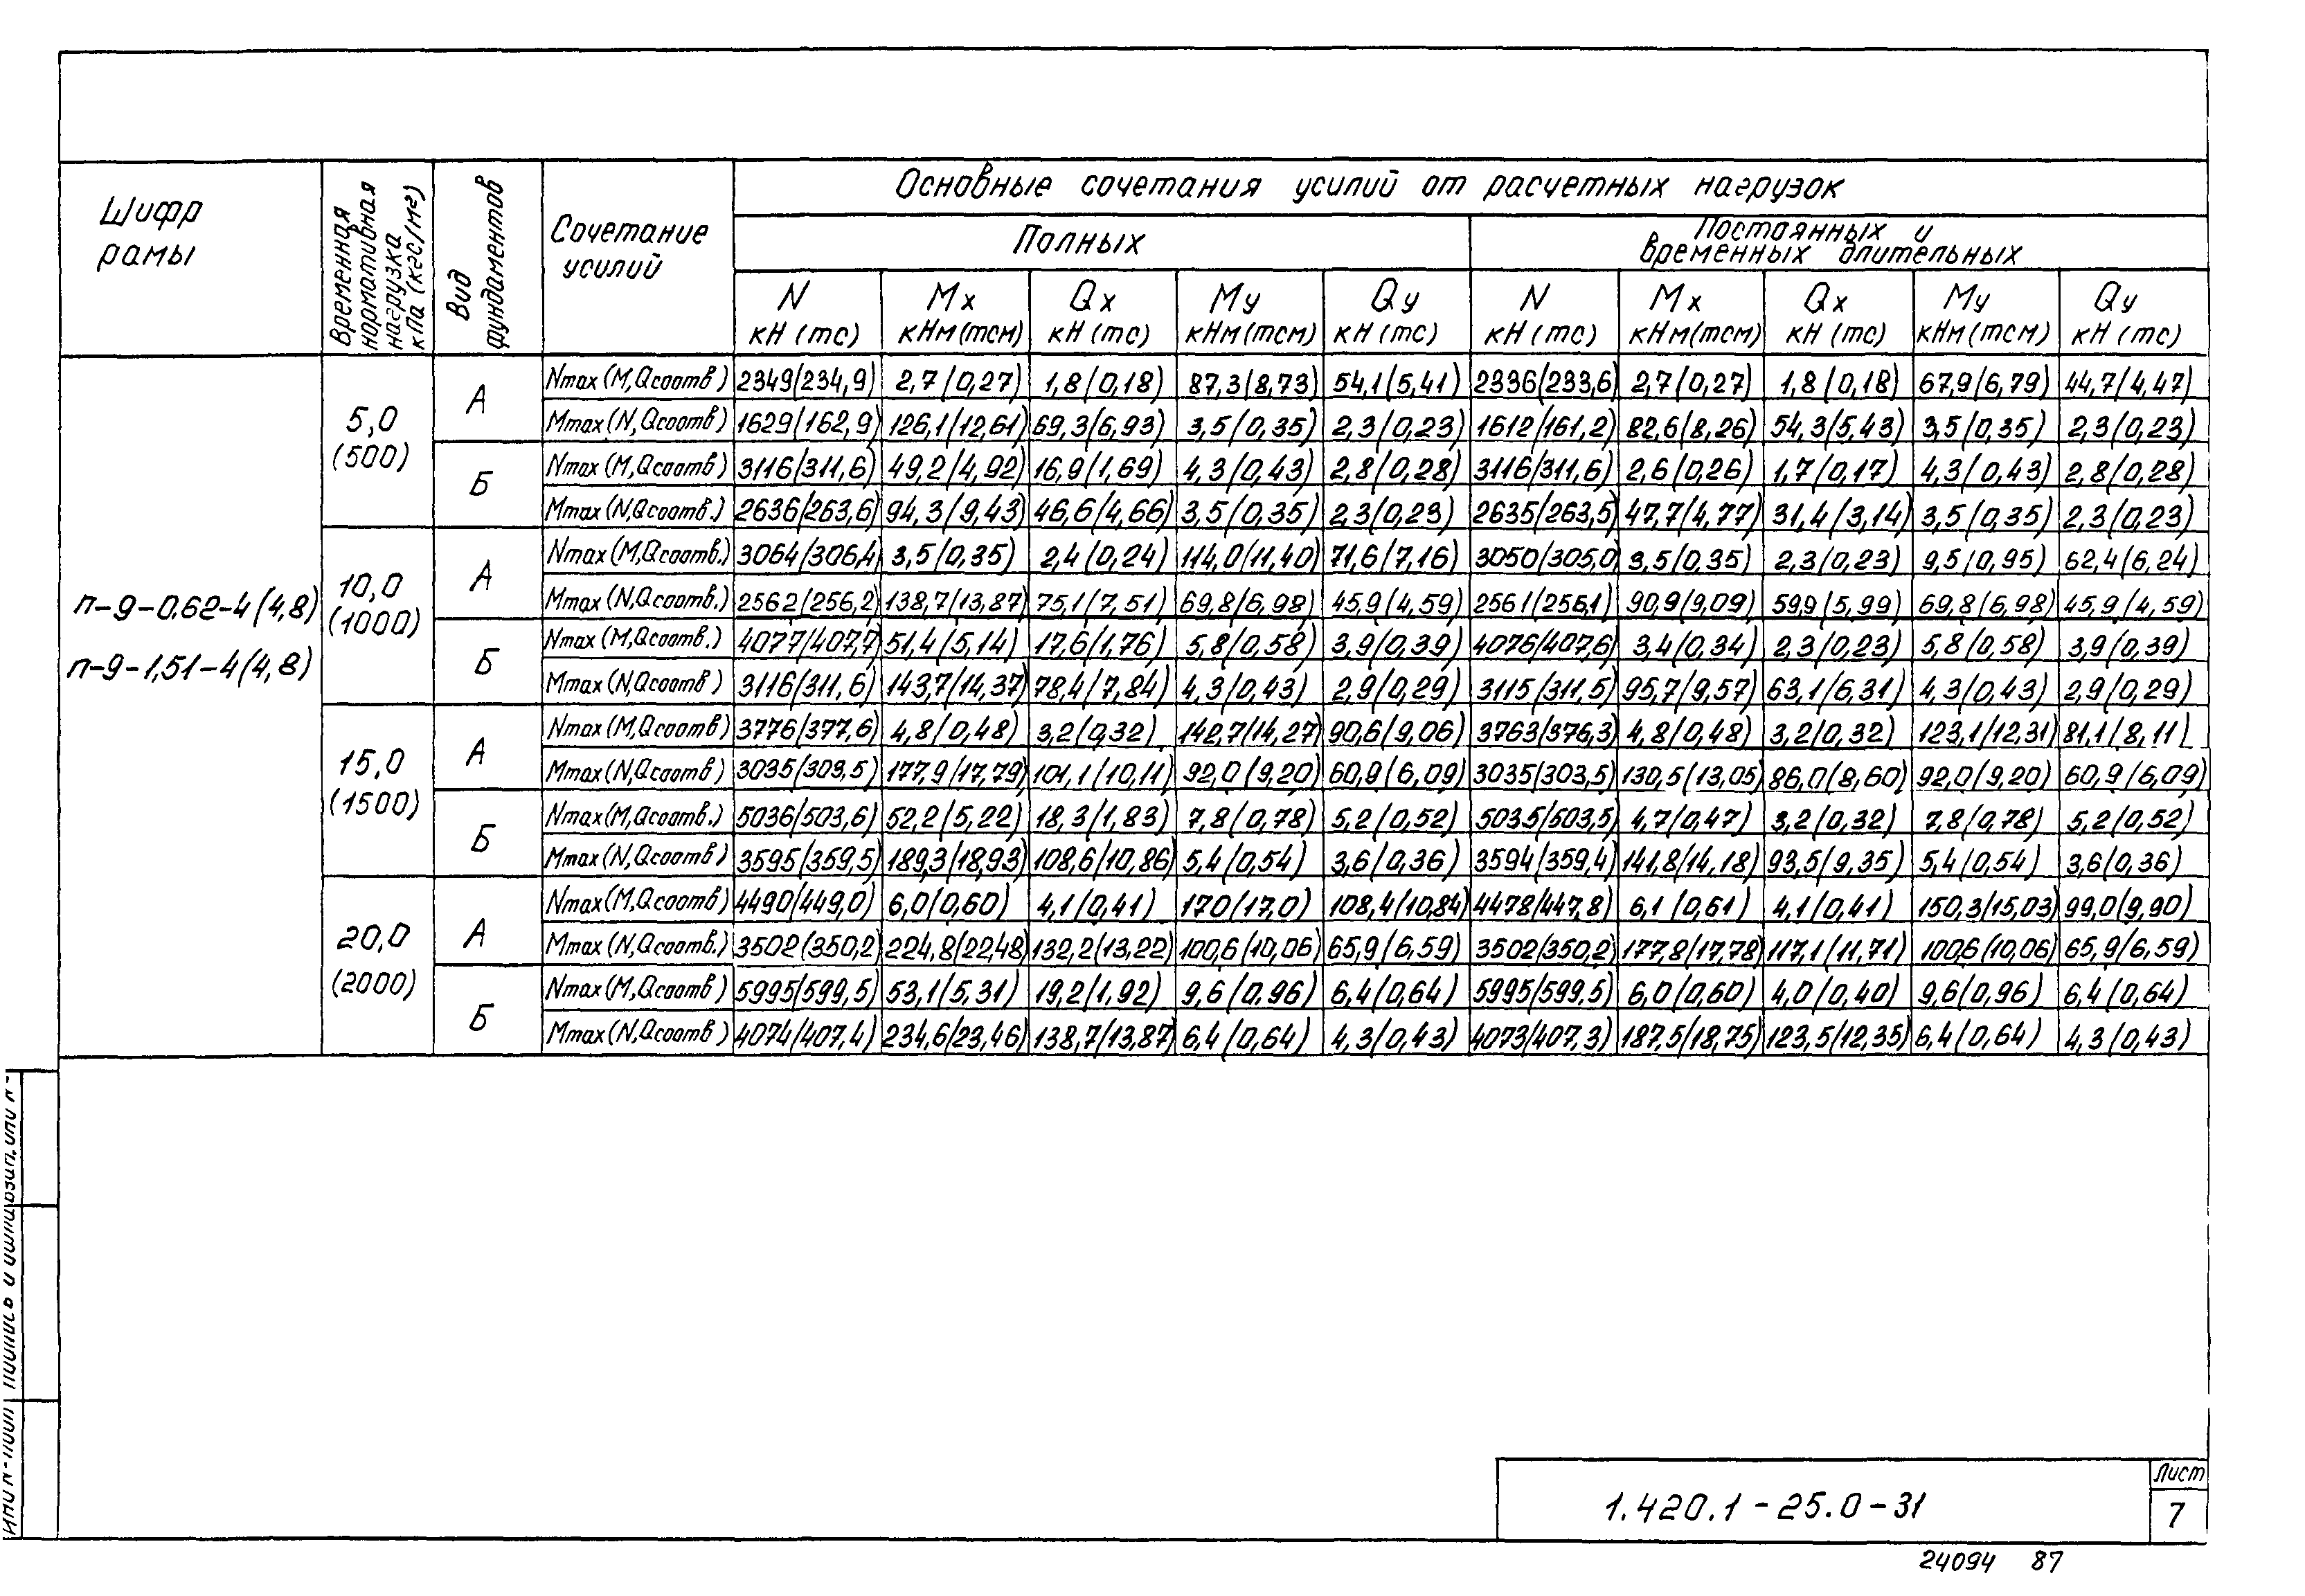 Шифр рамы
Временная нормативная нагрузка кПа (кгс/м²)
Вид фундаментов
Сочетание усилий
Основные сочетания усилий от расчетных нагрузок
Полных
Постоянных и временных длительных
N кН (тс) Mx кНм (тсм) Qx кН (тс) My кНм (тсм) Qy кН (тс) N кН (тс) Mx кНм (тсм) Qx кН (тс) My кНм (тсм) Qy кН (тс)
п-9-0.62-4(4,8)
п-9-1,51-4(4,8)
5,0 (500)
А
Nmax (M,Qсоотв) 2349/234,9) 2,7 (0,27) 1,8 (0,18) 87,3(8,73) 54,1(5,41) 2336/233,6) 2,7(0,27) 1,8 (0,18) 67,9(6,79) 44,7(4,47)
Mmax (N,Qсоотв) 1629/162,9) 126,1(12,61) 69,3(6,93) 3,5(0,35) 2,3(0,23) 1612/161,2) 82,6(8,26) 54,3(5,43) 3,5(0,35) 2,3(0,23)
Б
Nmax (M,Qсоотв) 3116/311,6) 49,2(4,92) 16,9(1,69) 4,3(0,43) 2,8(0,28) 3116/311,6) 2,6(0,26) 1,7(0,17) 4,3(0,43) 2,8(0,28)
Mmax (N,Qсоотв.) 2636/263,6) 94,3(9,43) 46,6(4,66) 3,5(0,35) 2,3(0,23) 2635/263,5) 47,7(4,77) 31,4(3,14) 3,5(0,35) 2,3(0,23)
10,0 (1000)
А
Nmax (M,Qсоотв.) 3064/306,4) 3,5(0,35) 2,4(0,24) 114,0(11,40) 71,6(7,16) 3050/305,0) 3,5(0,35) 2,3(0,23) 9,5(0,95) 62,4(6,24)
Mmax (N,Qсоотв.) 2562/256,2) 138,7(13,87) 75,1(7,51) 69,8(6,98) 45,9(4,59) 2561(256,1) 90,9(9,09) 59,9(5,99) 69,8(6,98) 45,9(4,59)
Б
Nmax (M,Qсоотв.) 4077/407,7) 51,4(5,14) 17,6(1,76) 5,8(0,58) 3,9(0,39) 4076/407,6) 3,4(0,34) 2,3(0,23) 5,8(0,58) 3,9(0,39)
Mmax (N,Qсоотв) 3116/311,6) 143,7(14,37) 78,4(7,84) 4,3(0,43) 2,9(0,29) 3115/311,5) 95,7(9,57) 63,1(6,31) 4,3(0,43) 2,9(0,29)
15,0 (1500)
А
Nmax (M,Qсоотв) 3776/377,6) 4,8(0,48) 3,2(0,32) 142,7(14,27) 90,6(9,06) 3763/376,3) 4,8(0,48) 3,2(0,32) 123,1(12,31) 81,1(8,11)
Mmax (N,Qсоотв) 3035/303,5) 177,9(17,79) 101,1(10,11) 92,0(9,20) 60,9(6,09) 3035/303,5) 130,5(13,05) 86,0(8,60) 92,0(9,20) 60,9(6,09)
Б
Nmax (M,Qсоотв.) 5036/503,6) 52,2(5,22) 18,3(1,83) 7,8(0,78) 5,2(0,52) 5035/503,5) 4,7(0,47) 3,2(0,32) 7,8(0,78) 5,2(0,52)
Mmax (N,Qсоотв) 3595/359,5) 189,3(18,93) 108,6(10,86) 5,4(0,54) 3,6(0,36) 3594/359,4) 141,8(14,18) 93,5(9,35) 5,4(0,54) 3,6(0,36)
20,0 (2000)
А
Nmax (M,Qсоотв) 4490/449,0) 6,0(0,60) 4,1(0,41) 170(17,0) 108,4(10,84) 4478/447,8) 6,1(0,61) 4,1(0,41) 150,3(15,03) 99,0(9,90)
Mmax (N,Qсоотв.) 3502(350,2) 224,8(22,48) 132,2(13,22) 100,6(10,06) 65,9(6,59) 3502/350,2) 177,8(17,78) 117,1(11,71) 100,6(10,06) 65,9(6,59)
Б
Nmax (M,Qсоотв) 5995/599,5) 53,1(5,31) 19,2(1,92) 9,6(0,96) 6,4(0,64) 5995/599,5) 6,0(0,60) 4,0(0,40) 9,6(0,96) 6,4(0,64)
Mmax (N,Qсоотв) 4074/407,4) 234,6(23,46) 138,7(13,87) 6,4(0,64) 4,3(0,43) 4073/407,3) 187,5(18,75) 123,5(12,35) 6,4(0,64) 4,3(0,43)
1.420.1-25.0-31
Лист
7
24094 87